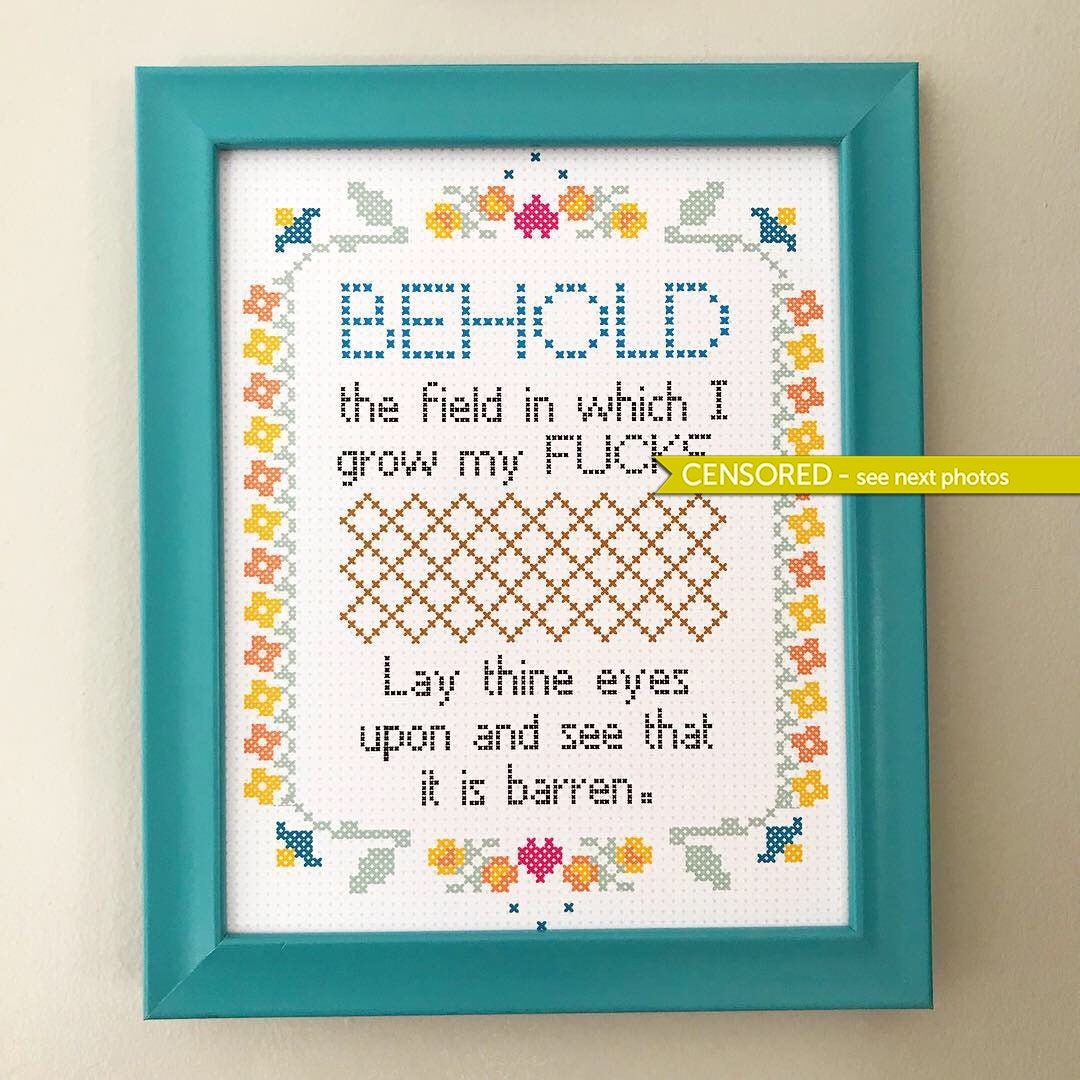 BEHOLD
the field in which I
grow my FUCKS
CENSORED - see next photos
Lay thine eyes
upon and see that
it is barren.